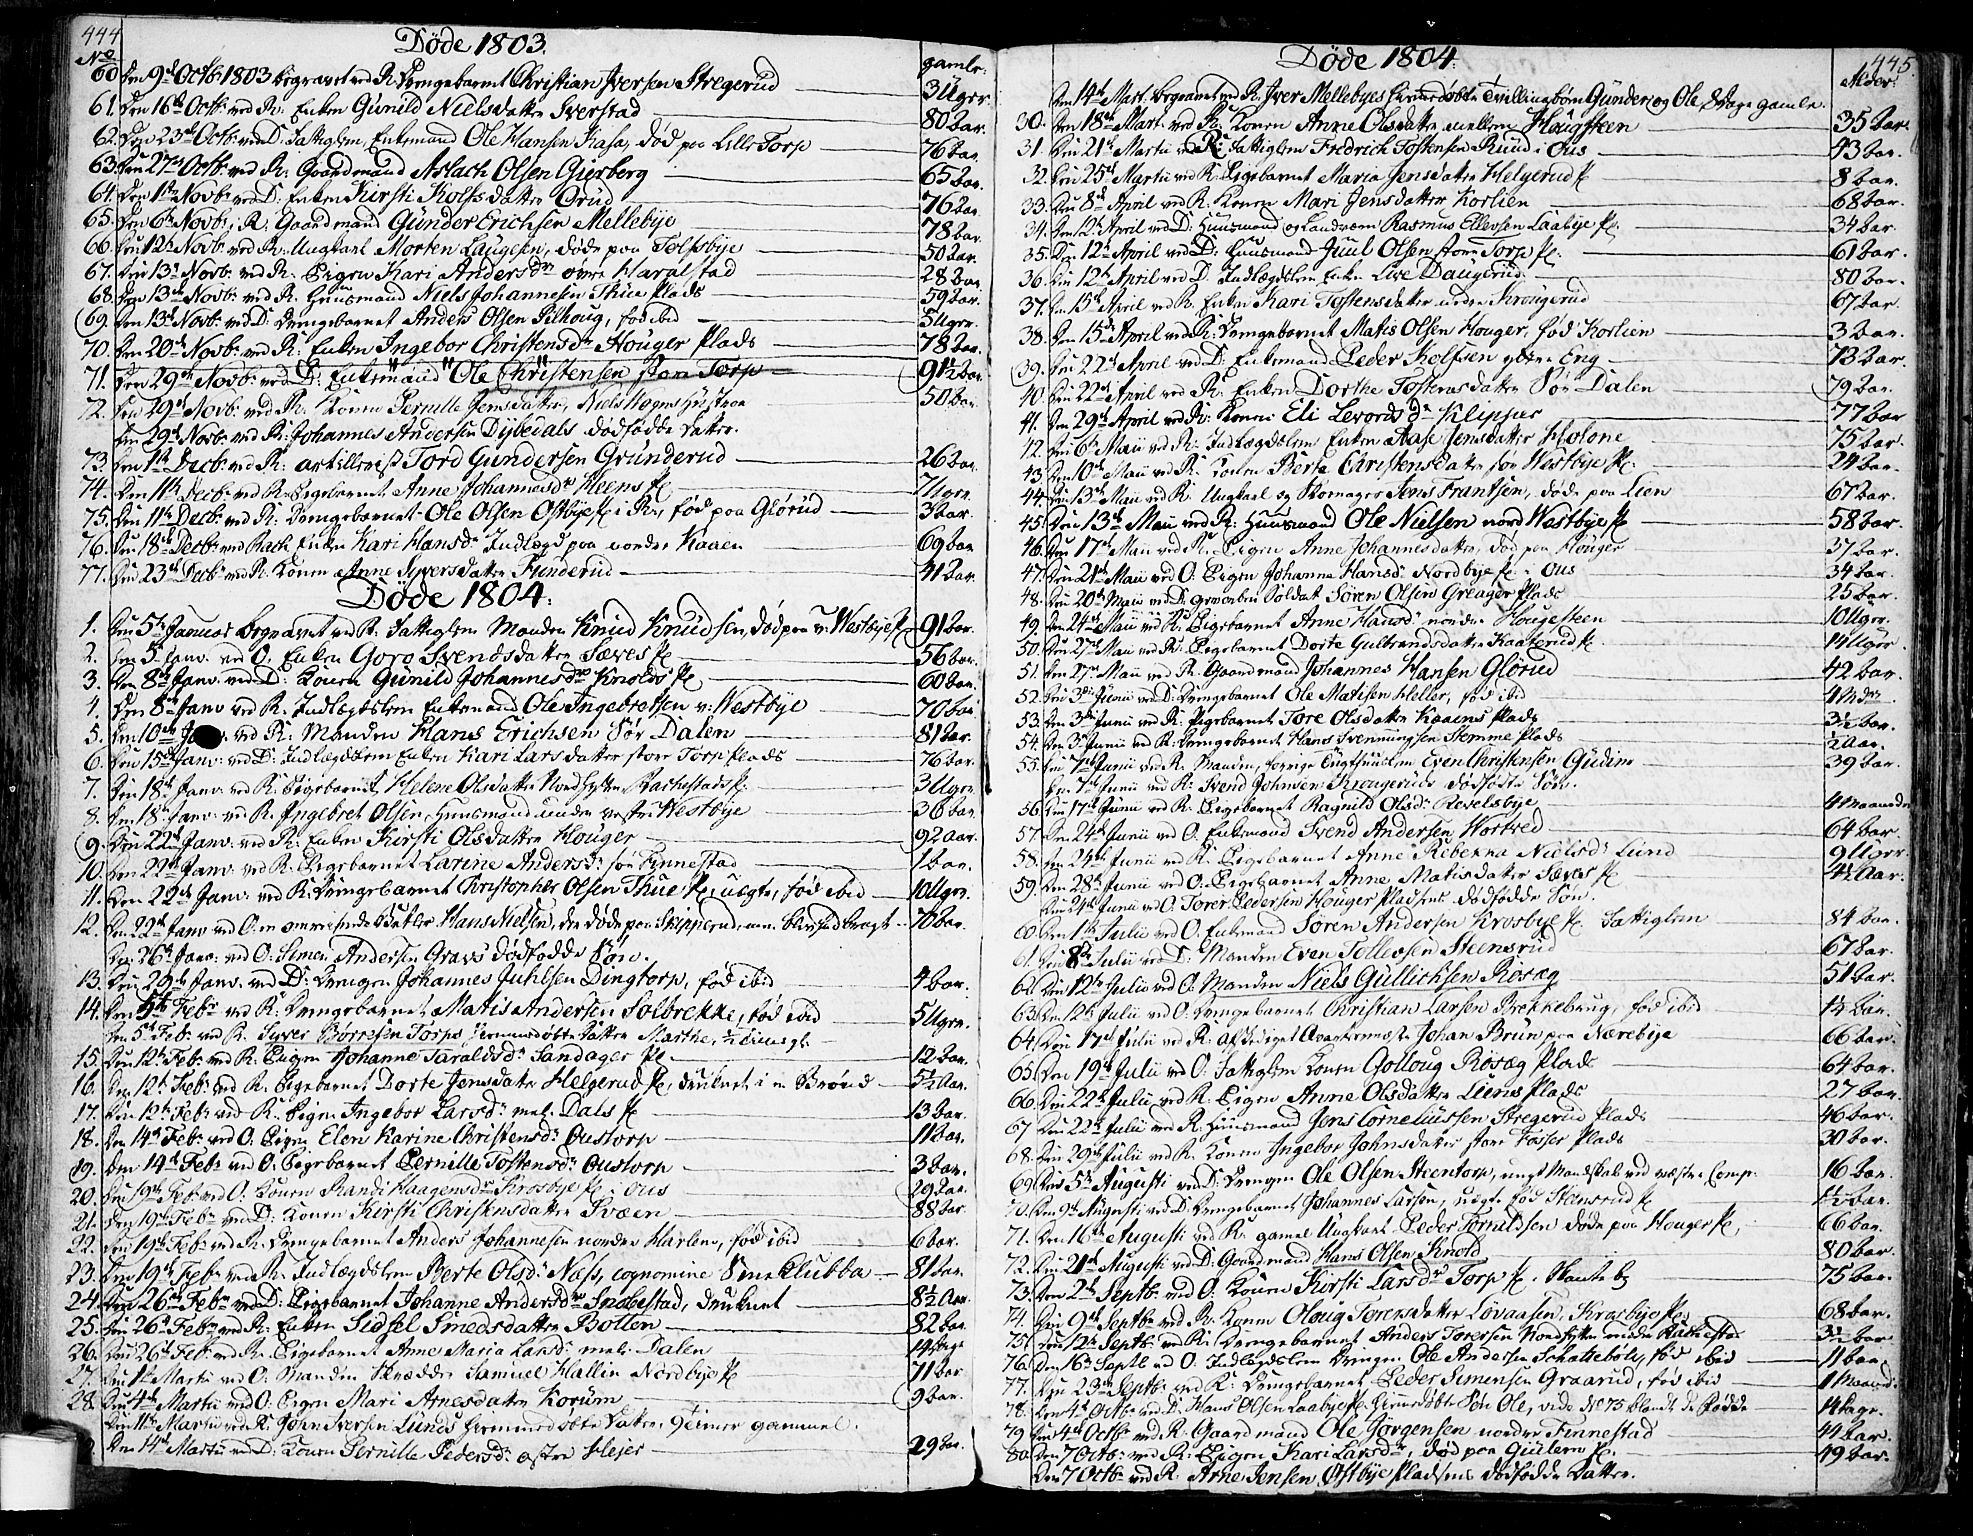 444
Døde 1803.
No gamle:
60 Den 9de Octb: 1803 begravet ved R. Drengebarnet Christian Iversen Stregerud 3 Uger
61. Den 16de Octb: ved R: Enken Gunild Nielsdatter Sverstad 80 Aar.
62. Den 23de Octb: ved D: Fattiglem, Enkemand Ole Hansen Kasa, død paa Lille Torp 76 Aar.
63. Den 27de Octb: ved R: Gaardmand Aslach Olsen Gierberg 65 Aar.
64. Den 1te Novb: ved D: Enken Kirsti Rolfsdatter Grud 76 Aar
65. Den 6te Novb: i R: Gaardmand Gunder Erichsen Mellebye 78 Aar.
66. Den 12te Novb: ved R: Ungkarl Morten Laugesen, døde paa Tolfsbye 50 Aar.
67. Den 13de Novb: ved R: Pigen Kari Andersdr øvre Haralstad 28 Aar
68. Den 13de Novb: ved R. Huusmand Niels Johannesen Thue Plads 59 Aar.
69. Den 13de Novb: ved D: Drengebarnet Anders Olsen Silhoug, fød ibid 5 Uger.
70. Den 20de Novb: ved R: Enken Ingebor Christensdr Houger Plads 78 Aar.
71. Den 29de Novb: ved D: Enkemand Ole Christensen store Torp 91½ Aar
72. Den 29de Novb: ved R. Konen Pernille Jensdatter, Niels Hustroe 50 Aar
Den 29de Novb: ved R: Johannes Andersen Dybedals dødfødde Datter.
73. Den 1te Decb: ved R: artillerist Tord Gundersen Grunderud 26 Aar
74. Den 11te Decb: ved R: Pigebarnet Anne Johannesdr Heems Pl 7 Uger
75. Den 11te Decb: ved R: Drengebarnet Ole Olsen Ostbye Pl i R:, fød paa Glørud 3 Aar.
76. Den 18de Decb: ved Rach. Enken Kari Hansdr Indlægd paa nordre Kaaen 69 Aar
77. Den 23de Decb: ved R: Konen Anne Syversdatter Funderud 41 Aar.
Døde 1804.
1. Den 5te Januar begravet ved R. Fattiglem Manden Knud Knudsen, død paa v: Westbye Pl 91 Aar.
2. Den 5te Janv: ved O. Enken Goro Svendsdatter Sæves Pl 56 Aar.
3. Den 8de Janv: ved D: Konen Gunild Johannesdr Knolds Pl 60 Aar.
4. Den 8de Janv: ved R. Indlægdslem Enkemand Ole Ingebretsen v: Westbye 70 Aar
5. Den 10de ved R: Manden Hans Erichsen Sør Dalen 81 Aar.
6. Den 15de Janv: ved D: Indlægdslem Enken Kari Larsdatter store Torp Plads 76 Aar
7. Den 18de Janv: ved R: Pigebarnet Helene Olsdatter Nordhytten Rachestads Pl. 3 Uger.
8. Den 18de Janv: ved R. Ingebret Olsen, Huusmand under vestre Westbye 36 Aar.
9. Den 22de Janv: ved R: Enken Kirsti Olsdatter Houger 92 Aar.
10. Den 22de Janv: ved R: Pigebarnet Larine Andersdr sør Finnestad 1 Aar.
11. Den 22de Janv: ved R: Drengebarnet Christopher Olsen Thue Pl. uægte, fød ibid 10 Uger.
12. Den 22de Janv: ved O: en omreisende Hans Nielsen, der døde paa Skipperud, men blev hid bragt 70 Aar.
Den 26de Janv: ved O: Simen Andersen Graves dødfødde Søn.
13. Den 29de Janv: ved D: Drengen Johannes Juhlsen Dingtorp, fød ibid 4 Aar.
14. Den 5te Febr: ved R: Drengebarnet Matis Andersen Solbrekke, fød ibid 5 Uger.
Den 5te Feb: ved R. Syver Børresen Torps hiemmedøbte Datter Marthe,
15. Den 12te Feb: ved R: Pigen Johanne Taraldsdr Sandager Pl 12 Aar.
16. Den 12te Feb: ved R: Pigebarnet Dorte Jensdatter Helgerud Pl, druknet i en Brønd 5½ Aar.
17. Den 12te Feb: ved R: Pigen Ingebor Larsdr mel: Dals Pl 13 Aar.
18. Den 14de Febr ved O: Pigen Elen Karine Christensdr Oustorp 11 Aar.
19. Den 14de Febr: ved O: Pigebarnet Pernille Tostensdr Oustorp 3 Aar.
20. Den 19de Feb: ved O: Konen Randi Haagensdr Krosbye Pl i Ous 29 Aar.
21. Den 19de Febr ved D: Konen Kirsti Christensdatter Svæen 88 Aar
22. Den 19de Febr ved R: Drengebarnet Anders Johannesen nordre Harlem, fød ibid 6 Aar.
23. Den 19de Febr: ved R: Indlægdslem Berte Olsdr Næss, cognomine Klubba 81 Aar.
24. Den 26de Febr ved D: Pigebarnet Johanne Andersdr Snobestad, druknet 8½ Aar
25. Den 26de Febr ved R: Enken Sidsel Smedsdatter Bollen 82 Aar
26. Den 26de Feb: ved R: Pigebarnet Anne Maria Larsdr mel: Dalen 14 Dage
27. Den 1te Martii ved O: Manden Skrædder Samuel Hallin Nordbye Pl 71 Aar
28. Den 4de Martii ved O: Pigen Mari Arnesdatter Korum 9 Aar.
Den 11te Martii ved R: John Iversen Lunds hiemmedøbte Datter, 9 Timer gammel.
Den 14de Martii ved D: Konen Pernille Pedersdr østre Hejer 29 Aar.
445
Døde 1804.
Alder:
Den 14de Mart: begravet ved R. Iver Mellebyes hiemmedøbte Tvillingbørn Gunder og Ole, 8 Dage gamle.
30. Den 18de Mart: ved R: Konen Anne Olsdatter mellem Hougsteen 35 Aar.
31. Den 21de Martii ved R: Fattiglem Fredrich Tostensen Ruud i Ous 43 Aar.
32. Den 25de Martii ved R: Pigebarnet Maria Jensdatter Helgerud Pl 8 Aar.
33. Den 8de April ved R. Konen Mari Jensdatter Korslien 68 Aar.
34. Den 12te April ved D: Huusmand og Landværn Rasmus Ellevsen Laabye Pl. 34 Aar.
35. Den 12te April ved D: Huusmand Juul Olsen store Torp Pl. 61 Aar.
36. Den 12te April ved D. Indlægdslem Enken Live Daugerud. 80 Aar.
37. Den 15de April ved R. Enken Kari Tostensdatter nedre Krougerud 67 Aar.
38. Den 15de April ved R: Drengebarnet Matis Olsen Houger, fød Korslien 3 Aar.
39. Den 22de April ved D: Enkemand Peder Rolfsen ytre Eng 73 Aar
40. Den 22de April ved R: Enken Dorthe Tostensdatter Sør Dalen 79 Aar.
41. Den 29de April ved R: Konen Eli Levordsdr Klypper 77 Aar
42. Den 6te Maii ved R: Indlægdslem Enken Aase Jensdatter Holone 75 Aar.
43. Den 10de Maii ved R. Konen Berte Christensdatter sør Westbye Pl. 24 Aar.
44. Den 13de Maii ved R. Ungkarl og Skomager Jens Frantsen, døde paa Lien 67 Aar.
45. Den 13de Maii ved R: Huusmand Ole Nielsen nord Westbye Pl 58 Aar.
46. Den 17de Maii ved R. Pigen Anne Johannesdatter, død paa Houger 37 Aar.
47. Den 21de Maii ved O. Pigen Johanne Hansdr Nordbye Pl i Ous 34 Aar.
48. Den 20de Maii ved D: gevorben Soldat Søren Olsen Greager Plads 25 Aar.
49. Den 24de Maii ved R: Pigebarnet Anne Hansdr nordre Hougsteen 10 Uger.
50. Den 27de Maii ved R: Pigebarnet Dorte Gulbrandsdatter Kaaterud Pl. 14 Uger
51. Den 27de Maii ved R. Gaardmand Johannes Hansen Glørud 42 Aar.
52. Den 3de Junii ved D: Drengebarnet Ole Matisen Heller, fød ibid
53. Den 3de Junii ved R: Pigebarnet Tore Olsdatter Kaaens Plads 3½ Aar.
54. Den 3de Junii ved R: Drengebarnet Hans Svenningsen Stemme Plads ½ Aar.
55. Den 7de Junii ved R. Manden, forrige Even Christensen Gudim 39 Aar.
Den 7de Junii ved R: Svend Johnsen Krougeruds dødfødte Søn.
56. Den 17de Junii ved R: Pigebarnet Ragnild Olsdr Revelsbye 4 Maaneder
57. Den 24de Junii ved O. Enkemand Svend Andersen Wortved 64 Aar.
58. Den 24de Junii ved R: Pigebarnet Anne Rebekka Nielsdr Lund 9 Uger.
59. Den 28de Junii ved O: Pigebarnet Anne Matisdatter Sæves Pl 4½ Aar.
Den 24de Junii ved O: Torer Pedersen Houger Pladsens dødfødde Søn.
60. Den 1te Julii ved O. Enkemand Søren Andersen Krosbye Pl. Fattiglem 84 Aar.
61. Den 8de Julii ved D: Manden Even Tollevsen Steensrud 67 Aar.
62. Den 12te Julii ved O: Manden Niels Gullichsen Rosæg 51 Aar.
63. Den 12te Julii ved O: Drengebarnet Christian Larsen Brekkebrug, fød ibid 1½ Aar.
64. Den 17de Julii ved R: afskediget Johan Brun paa Nærebye 66 Aar
65. Den 19de Julii ved O: Fattiglem Konen Golloug Rosæg Plads 64 Aar.
66. Den 22de Julii ved R: Pigen Anne Olsdatter Liens Plads 27 Aar
67. Den 22de Julii ved R. Huusmand Jens Corneliussen Stregerud Plads 46 Aar.
68. Den 29de Julii ved R. Konen Ingebor Johnsdatter store Fosser Plads 30 Aar.
69. Den 5te Augusti ved D: Drengen Ole Olsen Steentorp, ungt Mandskab ved vestre Comp: 16 Aar.
70. Den 9de Augusti ved D: Drengebarnet Johannes Larsen, uægte fød Steensrud Pl
71. Den 16de Augusti ved R: gamel Ungkarl Peder Tornildsen døde paa Houger Pl. 66 Aar.
72. Den 21de Augusti ved D: Gaardmand Hans Olsen Knold 80 Aar.
73. Den 2de Septb: ved O. Konen Kirsti Larsdr Torp Pl. i Skauteb: 75 Aar.
74. Den 9de Septbr ved R: Konen Oloug Torersdatter Lovaasen, Krosbye Pl. 68 Aar.
75. Den 12te Septb: ved R: Drengebarnet Anders Toresen Nordhytten under Rakkestad 3½ Aar
76. Den 16de Septb: ved O: Indlægdslem Drengen Ole Andersen Schattebøl, fød ibid 11 Aar
77. Den 23de Septb: ved R: Drengebarnet Peder Simensen Graarud, fød ibid 1 Maaned
78. Den 4de Octb: ved D: Hans Olsen Laabye Pl: hiemmedøbte Søn Ole, vide No 75 blandt de Fødde 14 Dage.
79. Den 4de Octb: ved R: Gaardmand Ole Jørgensen nordre Finnestad 44 Aar.
80. Den 7 Octb: ved R: Pigen Kari Larsdr, død paa Gislem Pl. 49 Aar.
Den 7 Octb: ved R: Arne Jensen Østbye Pladsens dødfødde Datter.